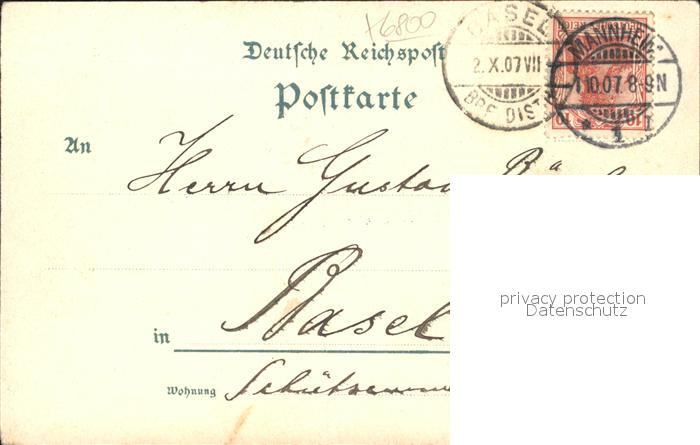 +6800
Deutsche Reichspost
Postkarte
BASEL
2.X.07 VII
BRF. DISTR.
MANNHEIM
1.10.07. 8-9N
* 1 I
An
Herrn Gustav
in Basel
Wohnung
privacy protection
Datenschutz